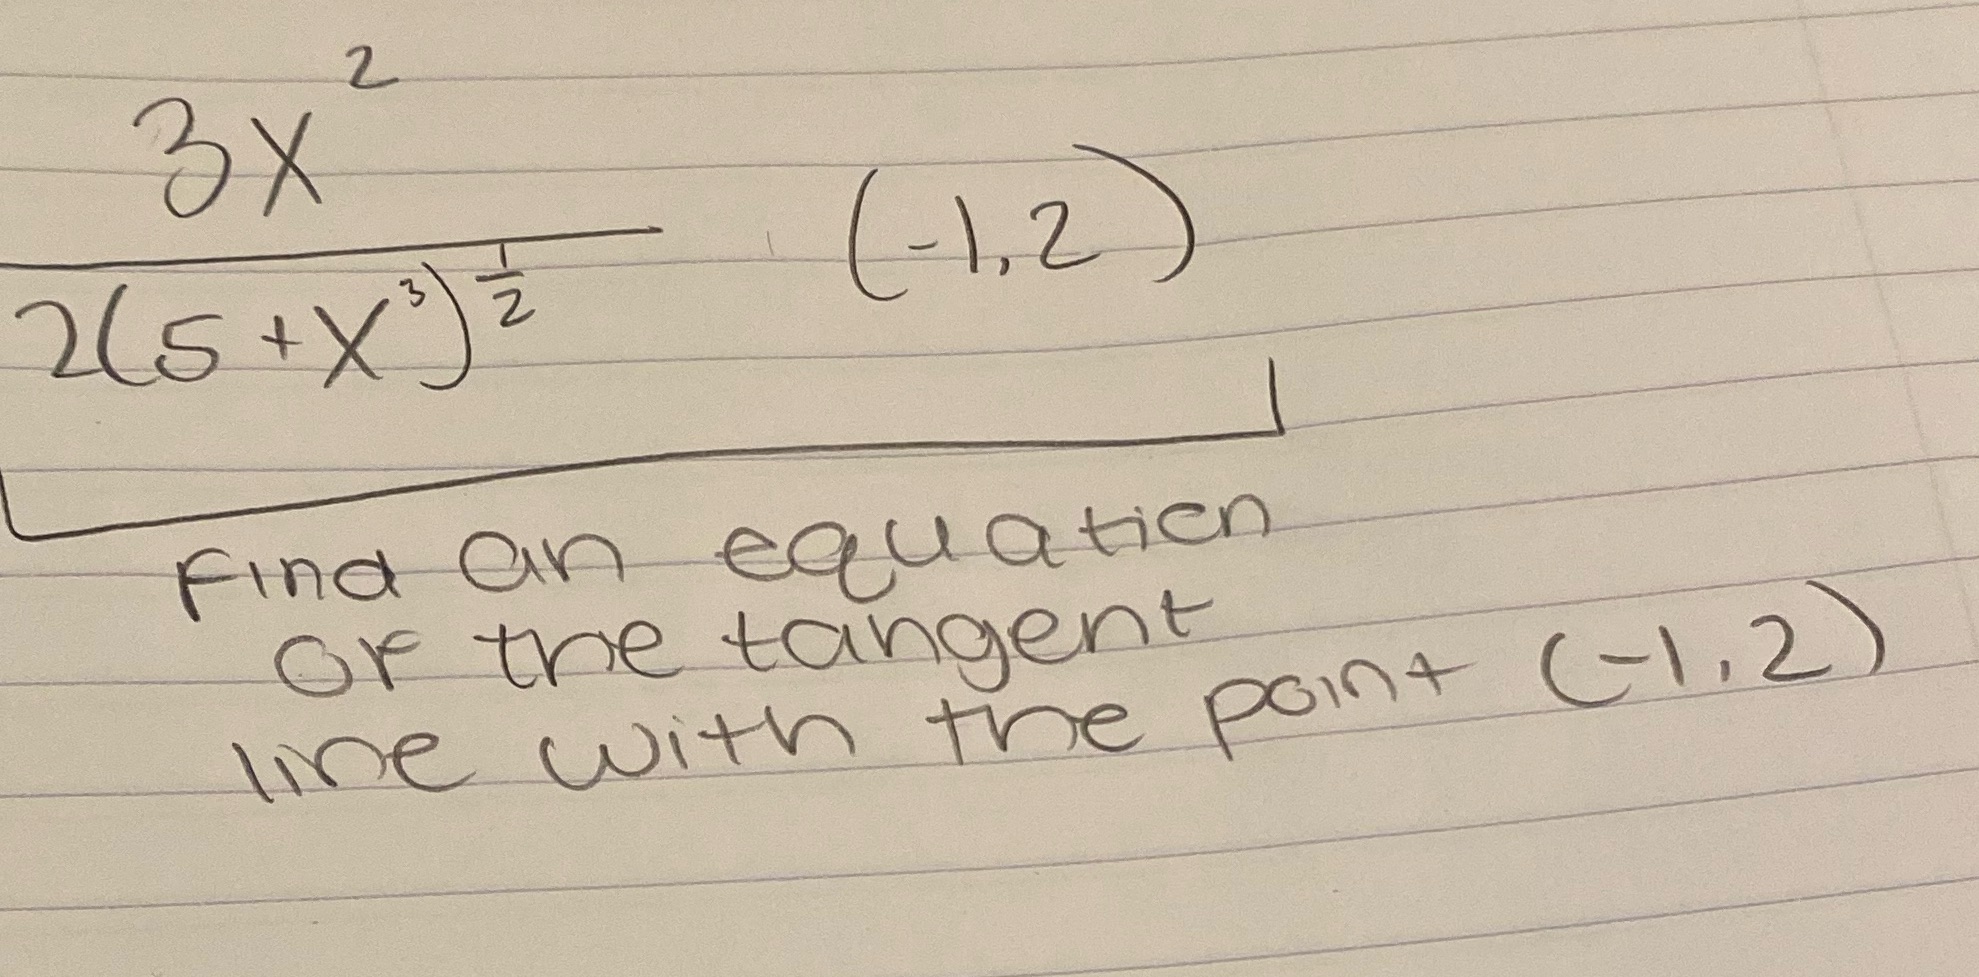 3x²
2(5+x³)^½ (-1,2)
Find an equation
of the tangent
line with the point (-1,2)